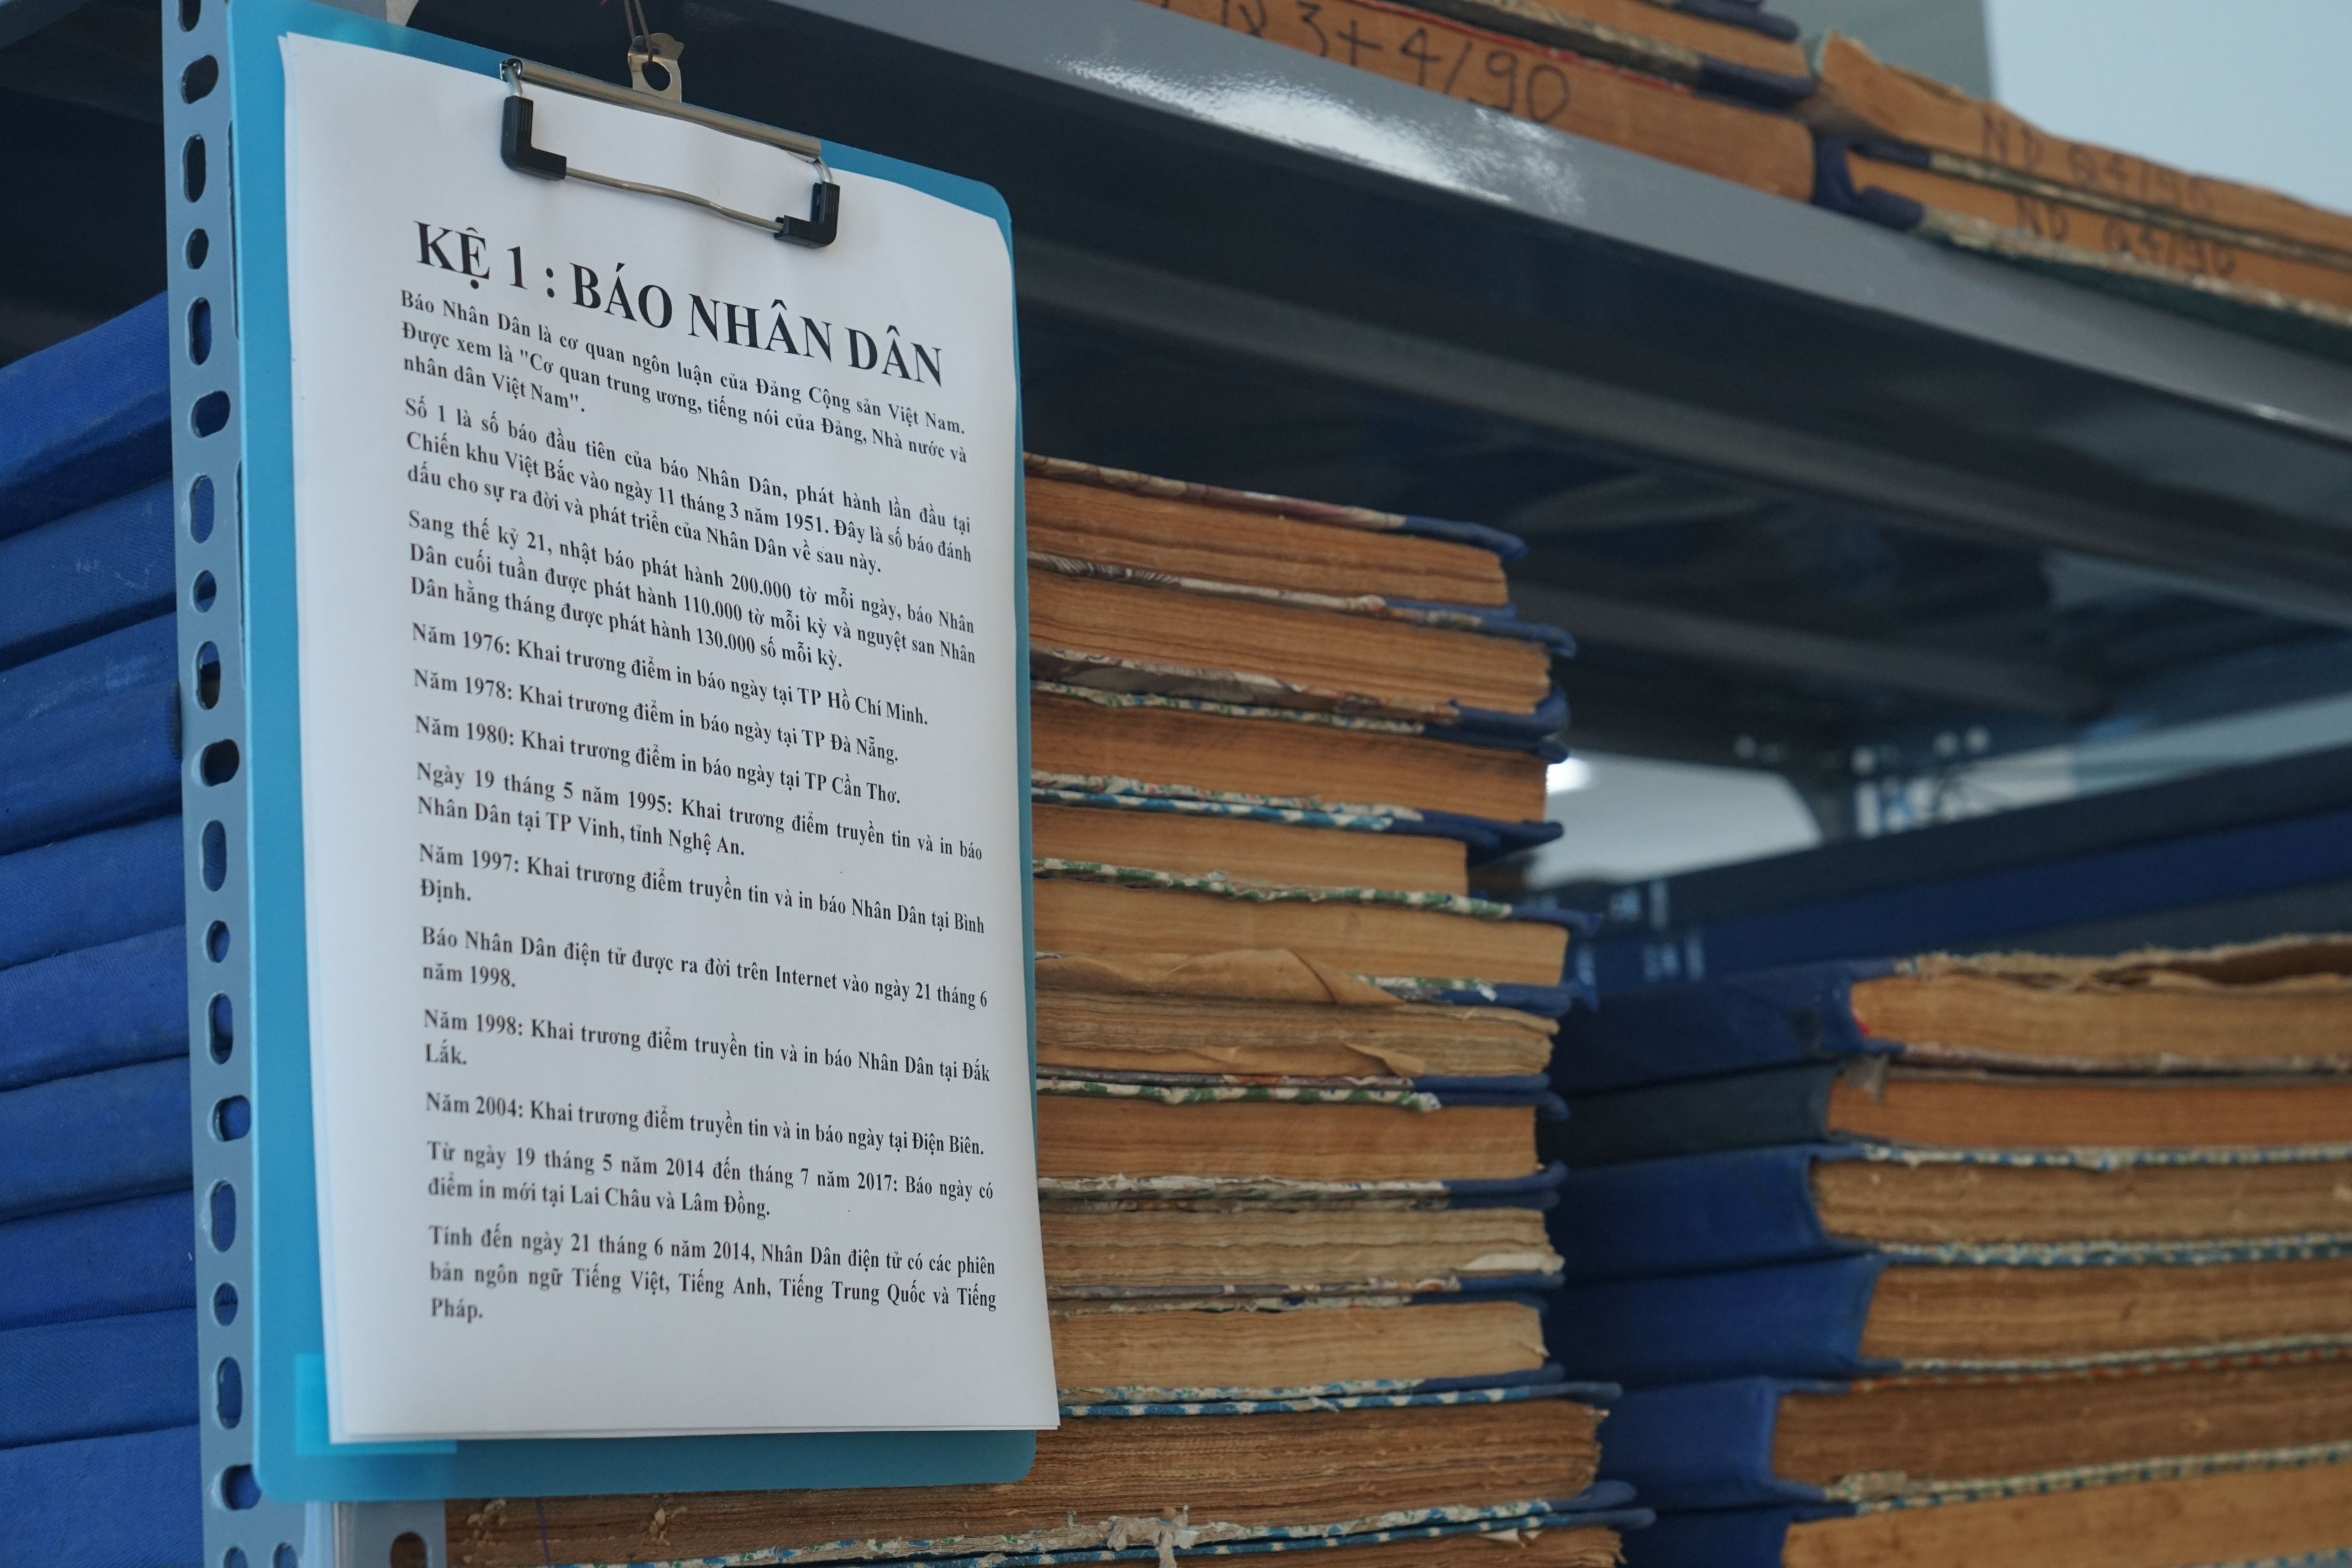 KỆ 1 : BÁO NHÂN DÂN
Báo Nhân Dân là cơ quan ngôn luận của Đảng Cộng sản Việt Nam.
Được xem là "Cơ quan trung ương, tiếng nói của Đảng, Nhà nước và
nhân dân Việt Nam".
Số 1 là số báo đầu tiên của báo Nhân Dân, phát hành lần đầu tại
Chiến khu Việt Bắc vào ngày 11 tháng 3 năm 1951. Đây là số báo đánh
dấu cho sự ra đời và phát triển của Nhân Dân về sau này.
Sang thế kỷ 21, nhật báo phát hành 200.000 tờ mỗi ngày, báo Nhân
Dân cuối tuần được phát hành 110.000 tờ mỗi kỳ và nguyệt san Nhân
Dân hằng tháng được phát hành 130.000 số mỗi kỳ.
Năm 1976: Khai trương điểm in báo ngày tại TP Hồ Chí Minh.
Năm 1978: Khai trương điểm in báo ngày tại TP Đà Nẵng.
Năm 1980: Khai trương điểm in báo ngày tại TP Cần Thơ.
Ngày 19 tháng 5 năm 1995: Khai trương điểm truyền tin và in báo
Nhân Dân tại TP Vinh, tỉnh Nghệ An.
Năm 1997: Khai trương điểm truyền tin và in báo Nhân Dân tại Bình
Định.
Báo Nhân Dân điện tử được ra đời trên Internet vào ngày 21 tháng 6
năm 1998.
Năm 1998: Khai trương điểm truyền tin và in báo Nhân Dân tại Đắk
Lắk.
Năm 2004: Khai trương điểm truyền tin và in báo ngày tại Điện Biên.
Từ ngày 19 tháng 5 năm 2014 đến tháng 7 năm 2017: Báo ngày có
điểm in mới tại Lai Châu và Lâm Đồng.
Tính đến ngày 21 tháng 6 năm 2014, Nhân Dân điện tử có các phiên
bản ngôn ngữ Tiếng Việt, Tiếng Anh, Tiếng Trung Quốc và Tiếng
Pháp.
Q 3+4/90
ND Q4/96
ND